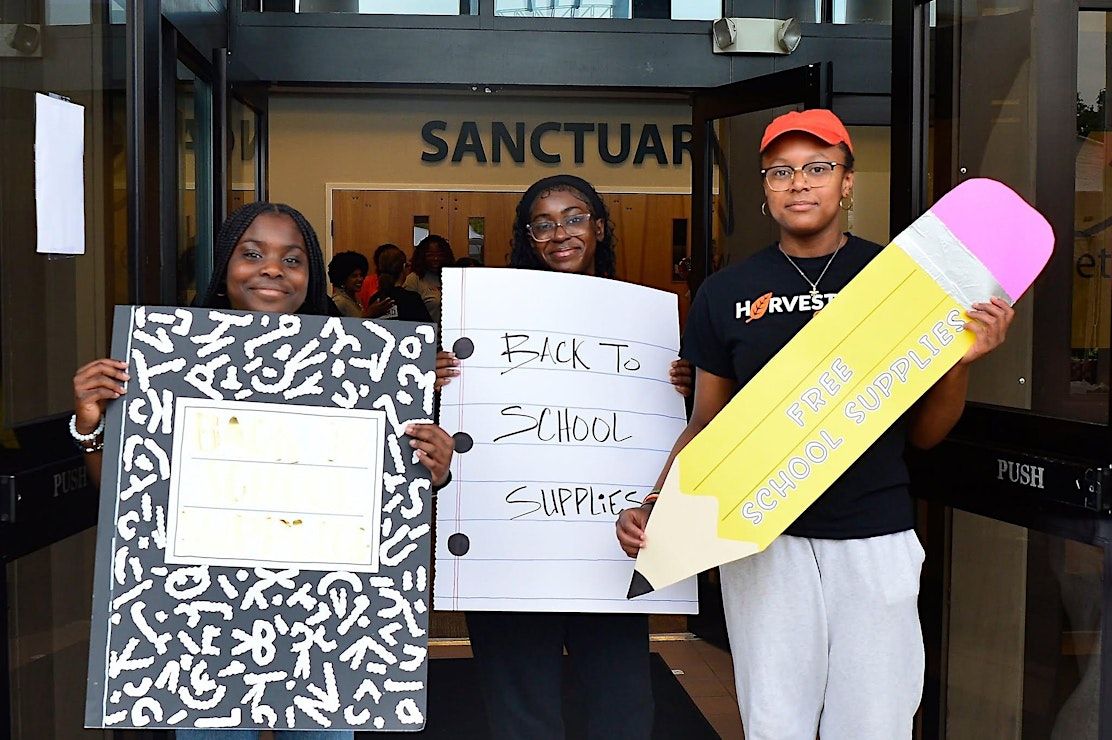 SANCTUAR
BACK TO
SCHOOL
SUPPLiES
HARVEST
FREE
SCHOOL SUPPLIES
PUSH
PUSH